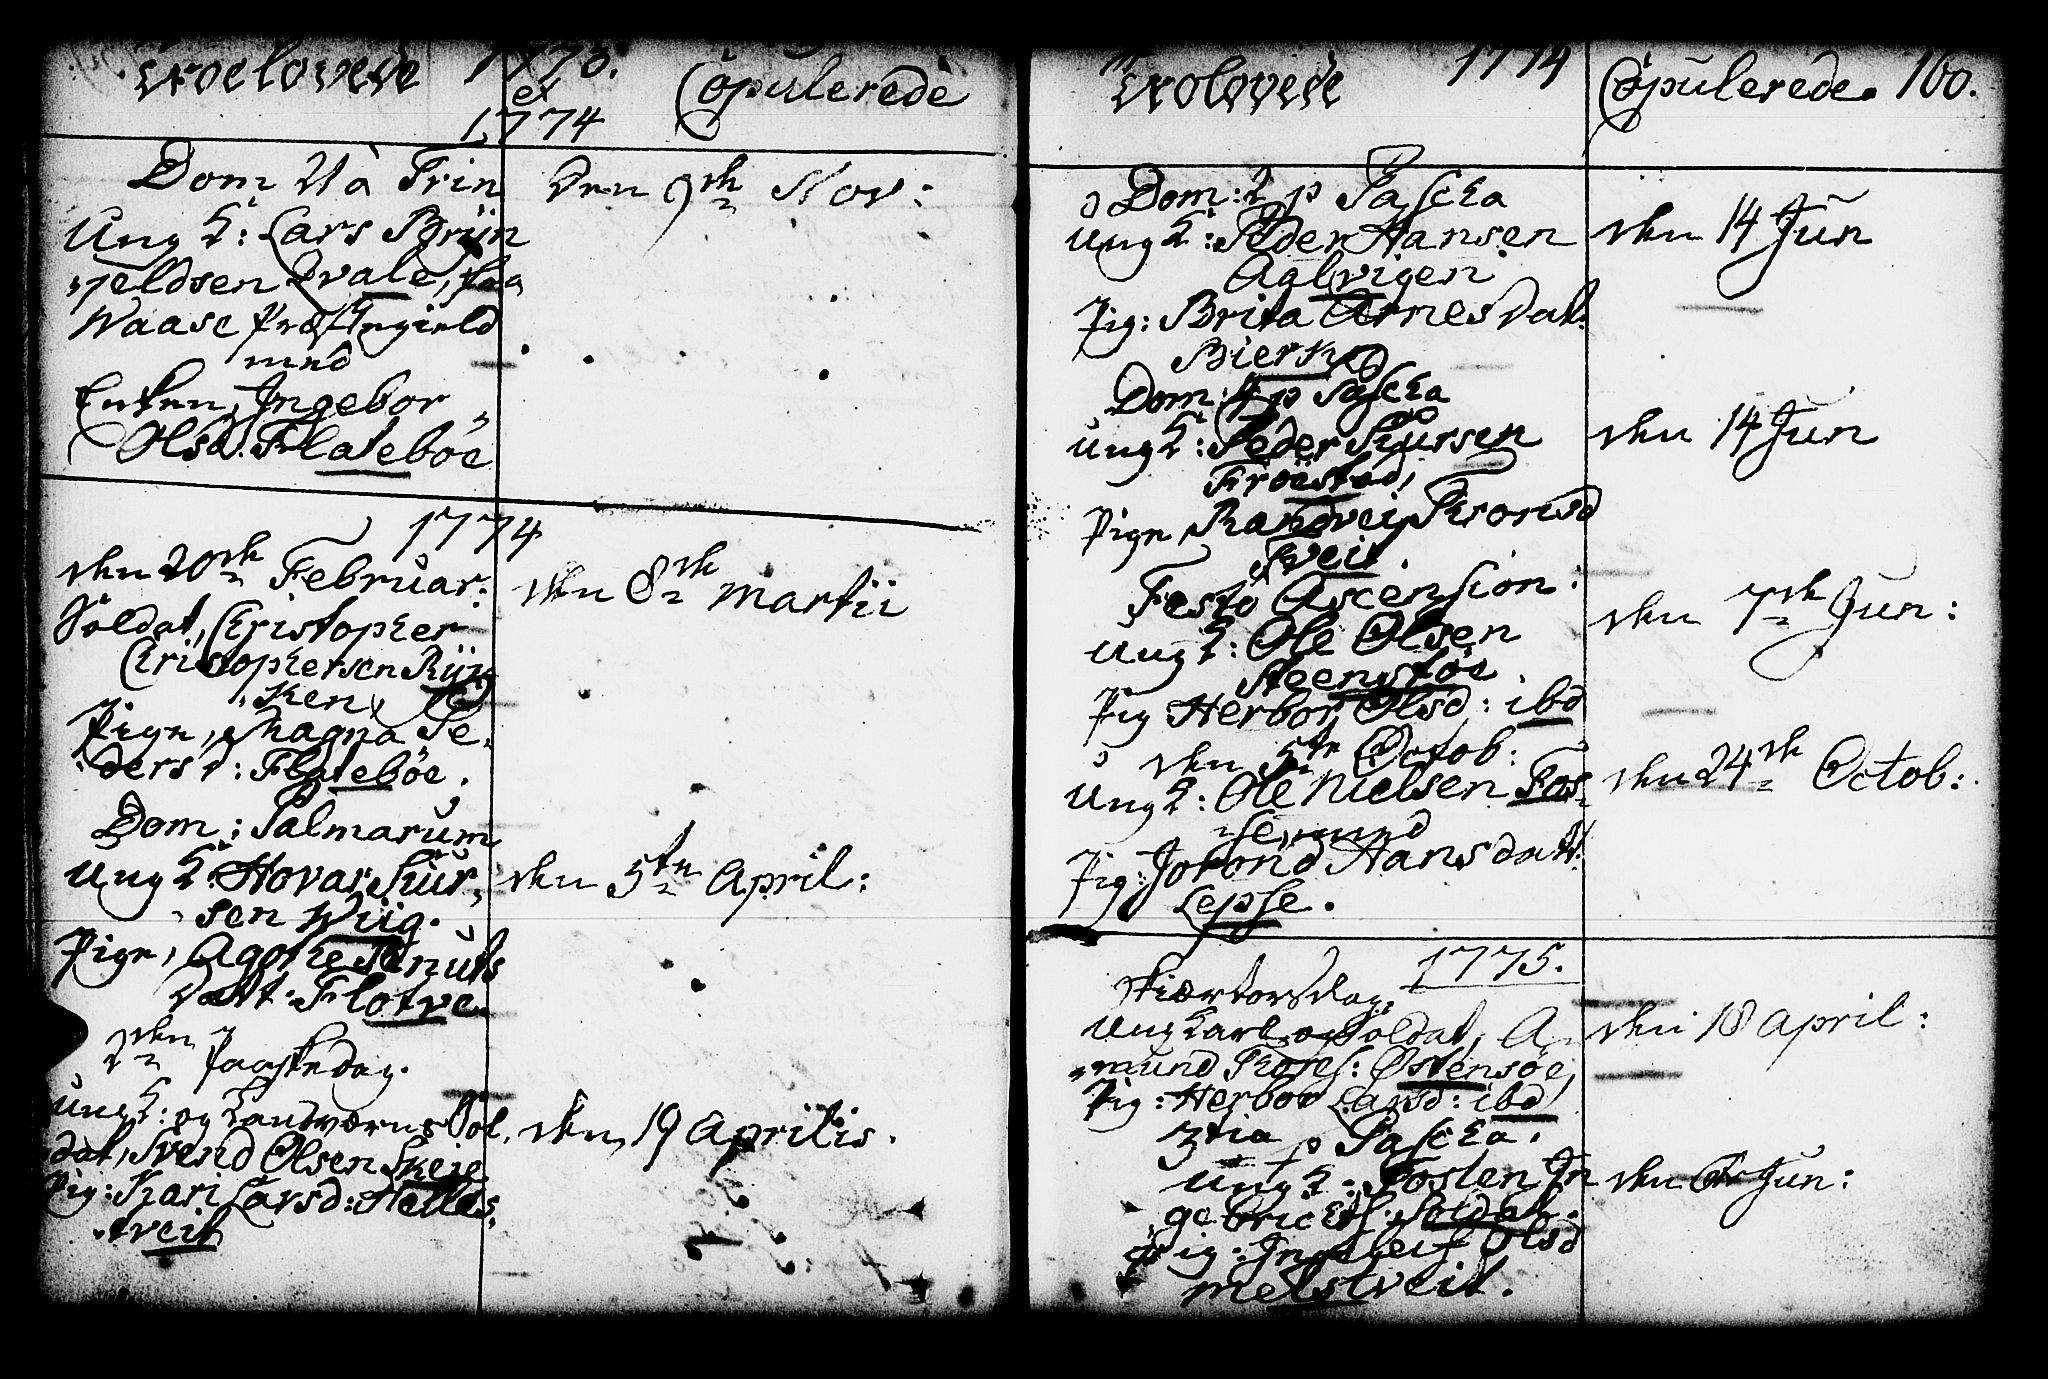 Troelovede 1773. Copulerede
et
1774
Dom 21 à Trin
Ung K: Lars Brün
gieldsen Qvale, fra
Waase Præstegield
med
Enken, Ingebor
Olsd. Flatebøe
den 9de Nov:
1774
den 20de Februar:
Soldat, Christopher
Christophersen Rÿn
ken
Pige, Magna Pe
ders d: Flatebøe.
den 8de Martii
Dom: Palmarum
Ung K. Hovar Siur
sen Wiig.
Pige, Agothe Knuts
datt. Flotve.
den 5te April:
2den Paaskedag.
Ung K: og Landværns Sol
dat, Svend Olsen Skeie
Pig: Kari Larsd: Helles
tveit
den 19 Aprilis.
Trolovede 1774 Copulerede. 160.
Dom: 2 p Pascha
Ung K: Peder Hansen
Aglvigen
Pig: Brita Arnes dat:
Bierk
den 14 Jun
Dom: 4 p Pascha
Ung K: Peder Siursen
Frøestad,
Pige Randvei Tronsd
Tveit
den 14 Jun
Festo Ascension:
Ung K: Ole Olsen
Steenstøe
Pig Herbor Olsd: ibd
den 7de Jun:
den 5te Octob:
Ung K: Ole Nielsen Fos
se, med
Pig: Jorond Hansdatt:
Lepse.
den 24de Octob:
1775.
Skiærtorsdag.
Ung Karl og Soldat, A
mund Thores: Østensøe,
Pig: Herbor Larsd: ibd
den 18 April:
3tia p Pascha.
Ung K: Tosten In
gebrichts: Soldat.
Pig: Ingleif Olsd
Melstveit.
den Jun: